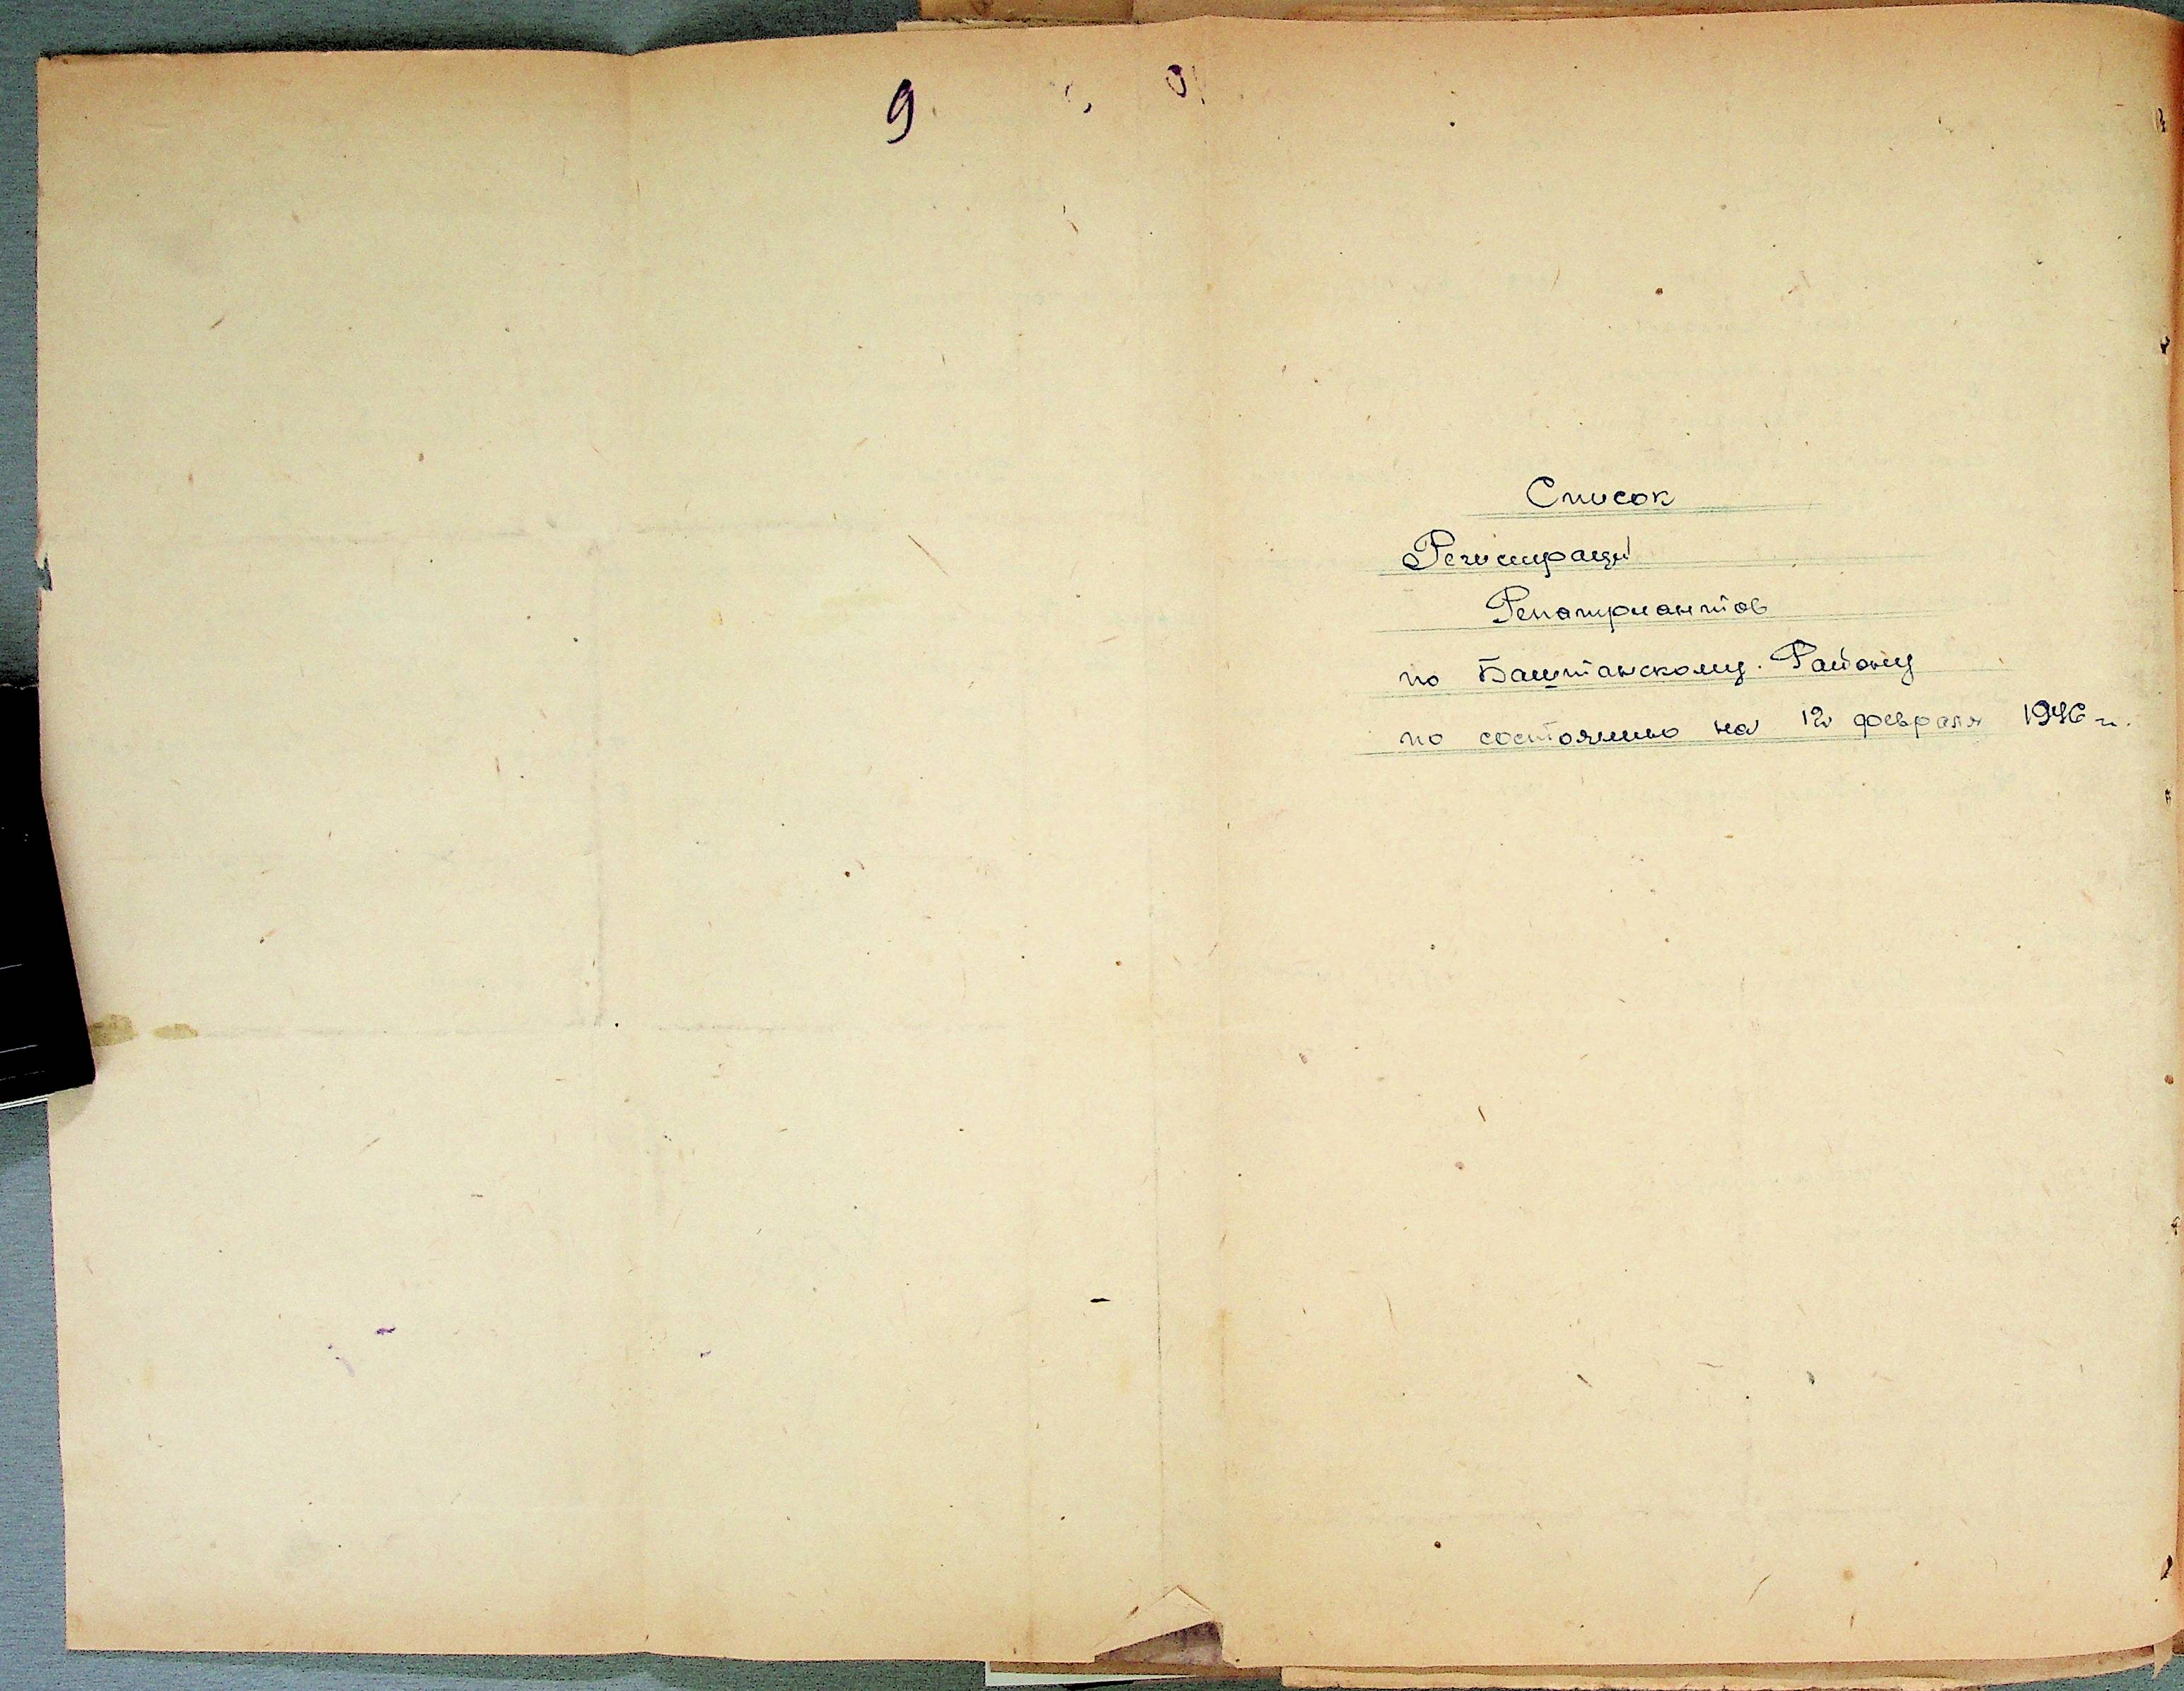 9
Список
Регистраци
Репатриантов
по Баштанскому. Району
по состоянию на 12 февраля 1946 г.